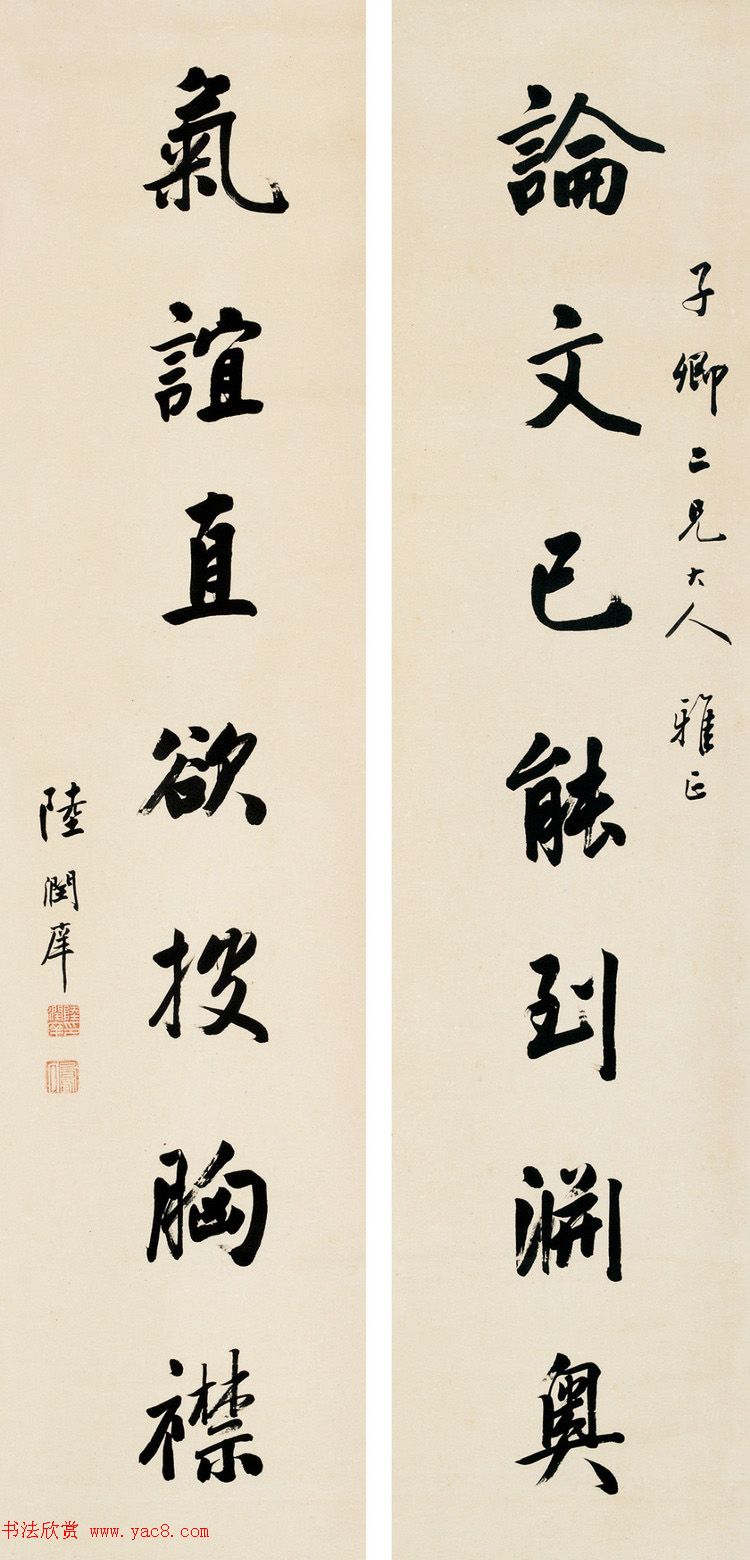 子卿二兄大人 雅正
論文已能到淵奧
氣誼直欲披胸襟
陸潤庠
书法欣赏 www.yac8.com